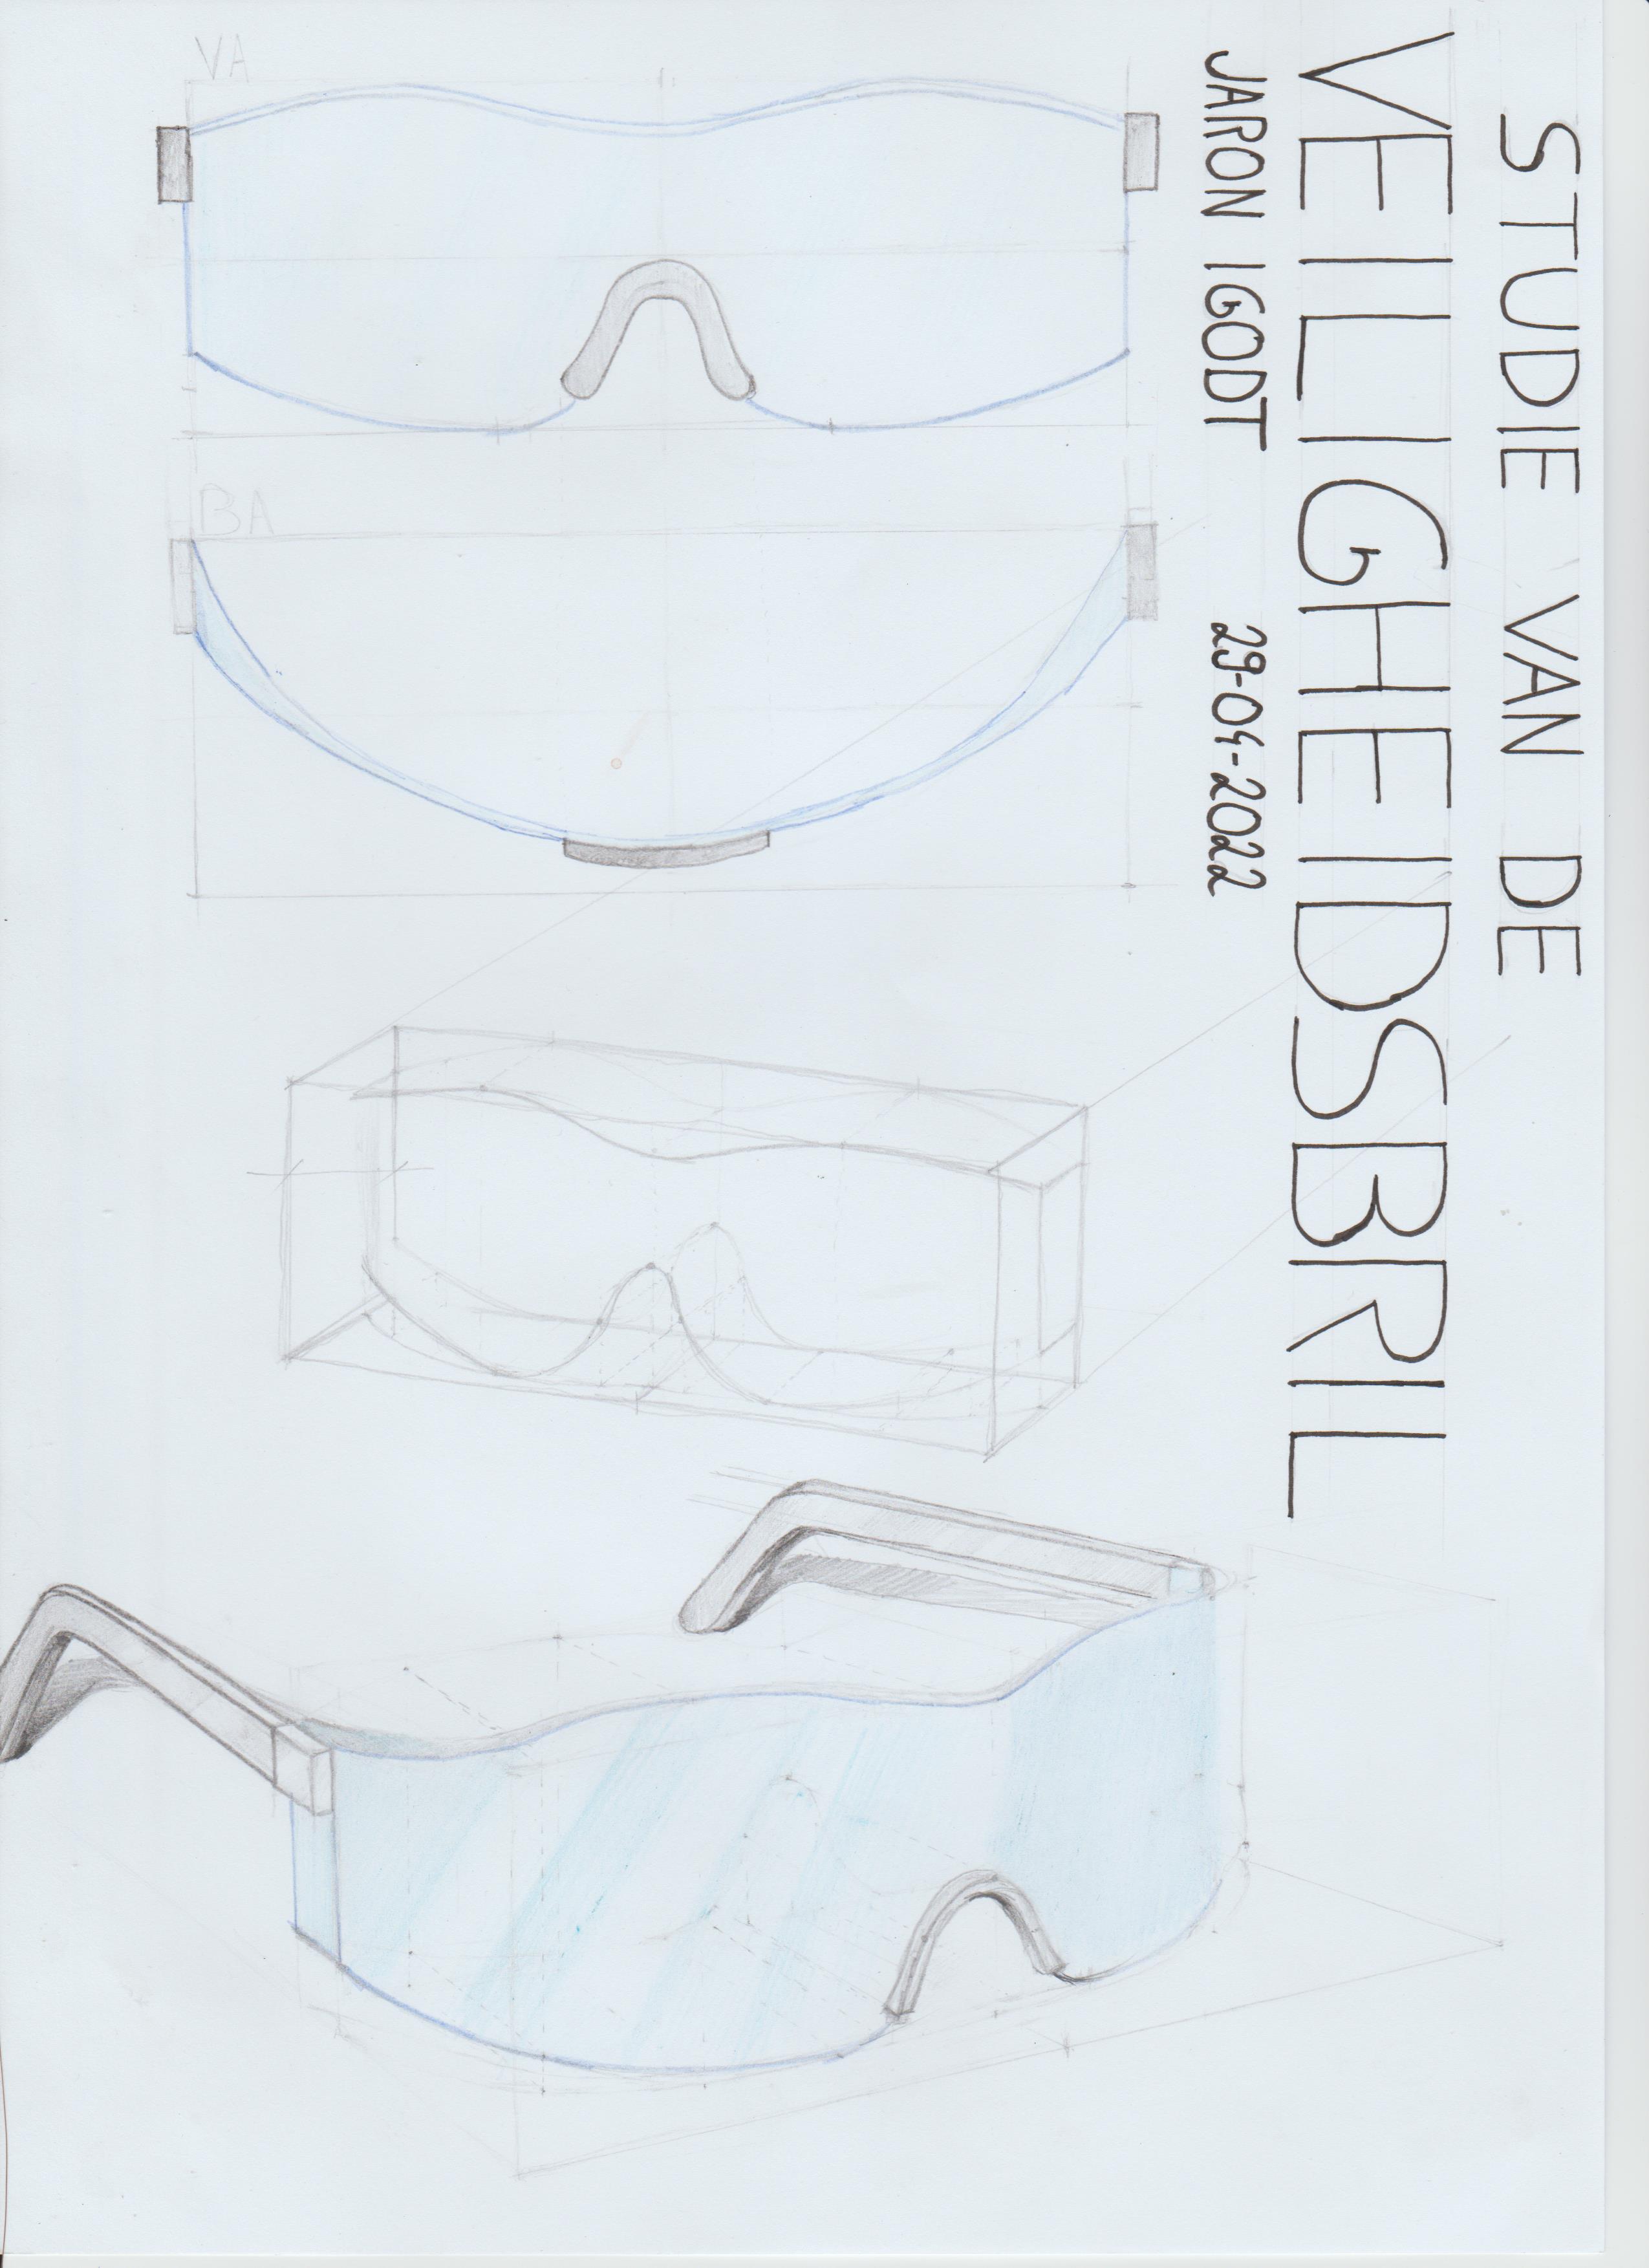 STUDIE VAN DE
VEILIGHEIDSBRIL
JARON IGODT 29-04-2022
VA
BA